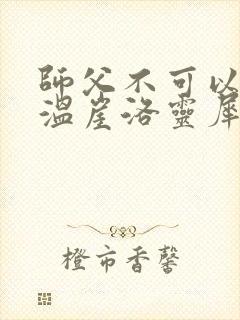 師父不可以
溫崖洛靈犀
橙市香馨